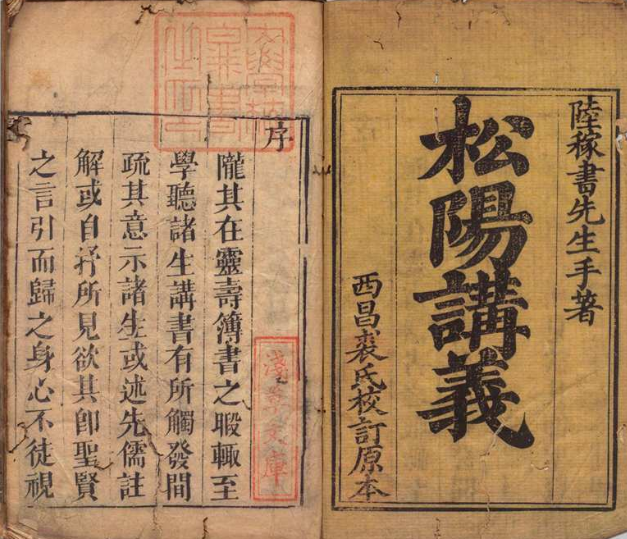 陸稼書先生手著
松陽講義
西昌裘氏校訂原本
序
隴其在靈壽簿書之暇輒至
學聽諸生講書有所觸發間
疏其意示諸生或述先儒註
解或自抒所見欲其卽聖賢
之言引而歸之身心不徒視
淺草文庫